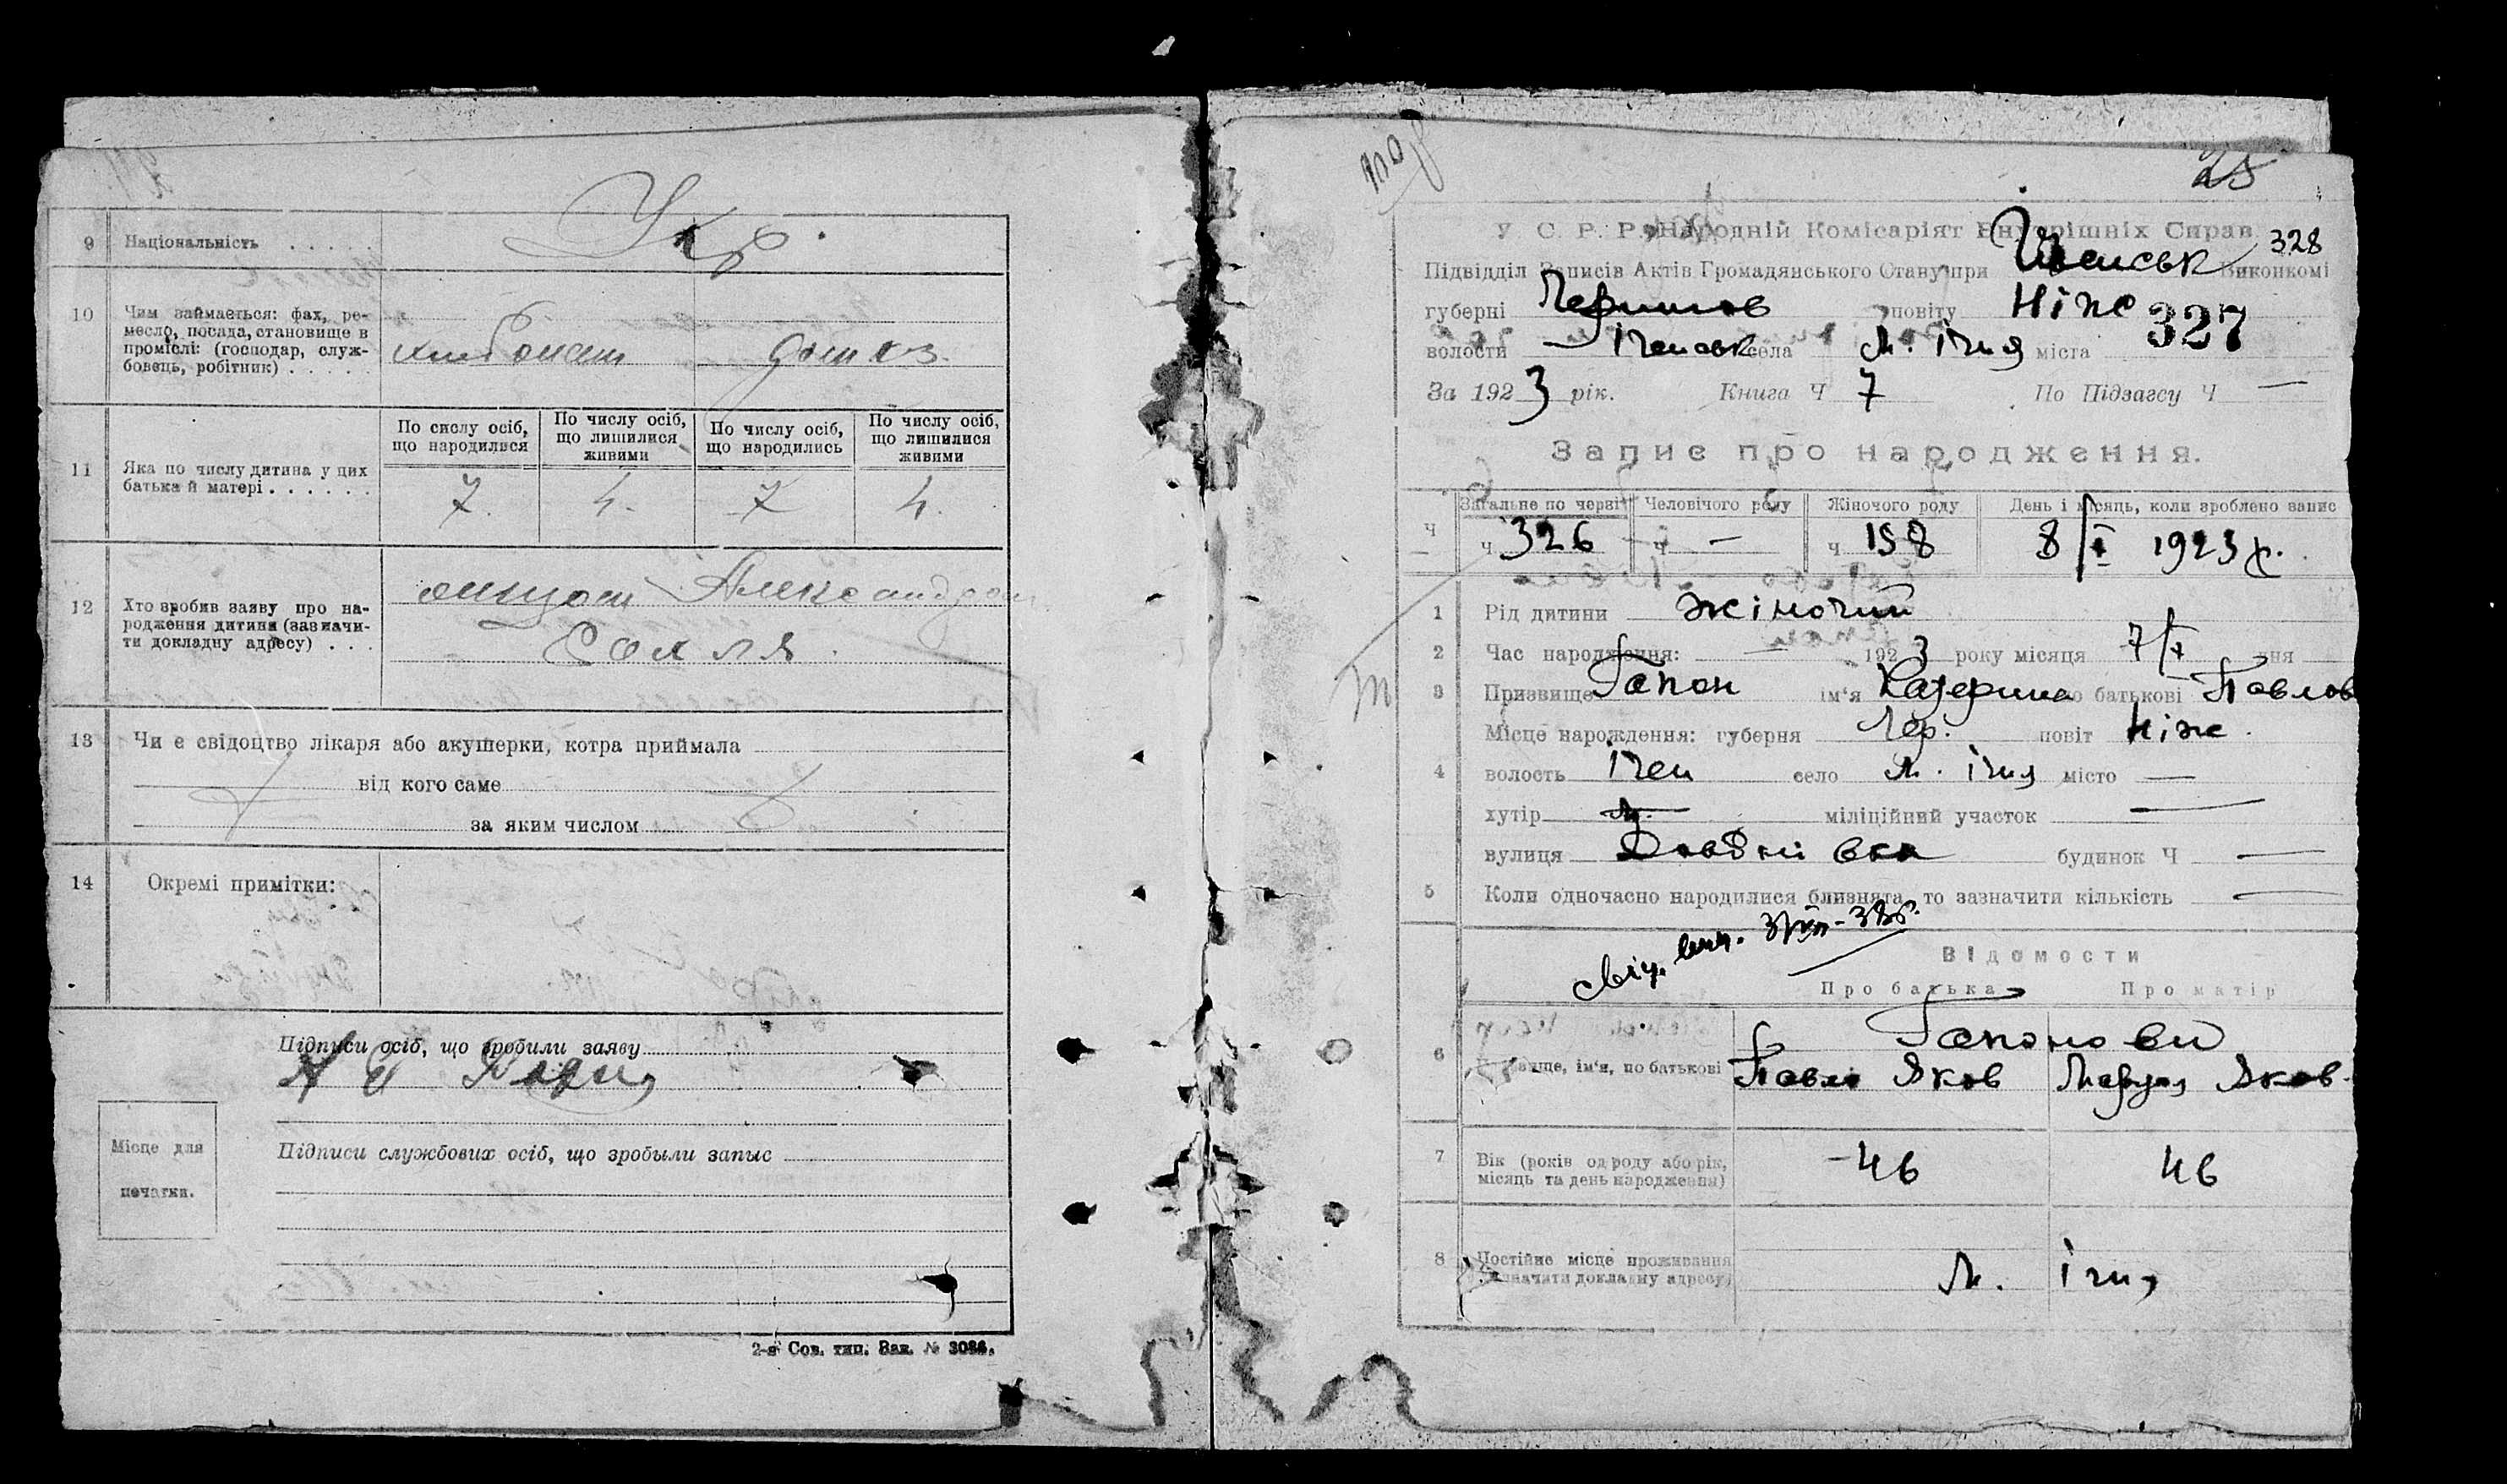 9 Національність . . . . . Укр.
10 Чим займається: фах, ре-
месло, посада, становище в
промислі: (господар, служ-
бовець, робітник) . . . . .
11 Яка по числу дитина у цих
батька й матері . . . . . .
По числу осіб, що народилися
По числу осіб, що лишилися живими
По числу осіб, що народились
По числу осіб, що лишилися живими
7. 4. 7 4.
12 Хто зробив заяву про на-
родження дитини (зазначи-
ти докладну адресу) . . .
13 Чи є свідоцтво лікаря або акушерки, котра приймала
від кого саме
за яким числом
14 Окремі примітки:
Підписи осіб, що зробили заяву
Підписи службових осіб, що зробыли запыс
Місце для
печатки.
2-я Сов. тип. Зак. № 3086.
25
У. С. Р. Р. Народній Комісаріят Внутрішніх Справ
328
Підвідділ Записів Актів Громадянського Стану при Іченськ Виконкомі
губерні Чернигов повіту Ніже
327
волости Іченськ села м. Ічня міста
За 1923 рік. Книга Ч 7 По Підзагсу Ч —
Запис про народження.
Ч
Загальне по черзі Человічого роду Жіночого роду День і місяць, коли зроблено запис
ч 326 ч — ч 158 8/X 1923 р.
1 Рід дитини жіночий
2 Час народження: — 1923 року місяця 7/X дня
3 Призвище Гапон ім'я Катерина по батькові Павлов
4 Місце народження: губерня Чер. повіт Ніже.
волость Ічен село м. Ічня місто —
хутір міліційний участок —
вулиця будинок Ч —
5 Коли одночасно народилися близнята, то зазначити кількість —
Відомости
Про батька Про матір
6 Призвище, ім'я, по батькові
Гапонови
Павло Яков Марья Яков.
7 Вік (років од роду або рік,
місяць та день народження)
46 46
8 Постійне місце проживання
(зазначити докладну адресу)
м. Ічня